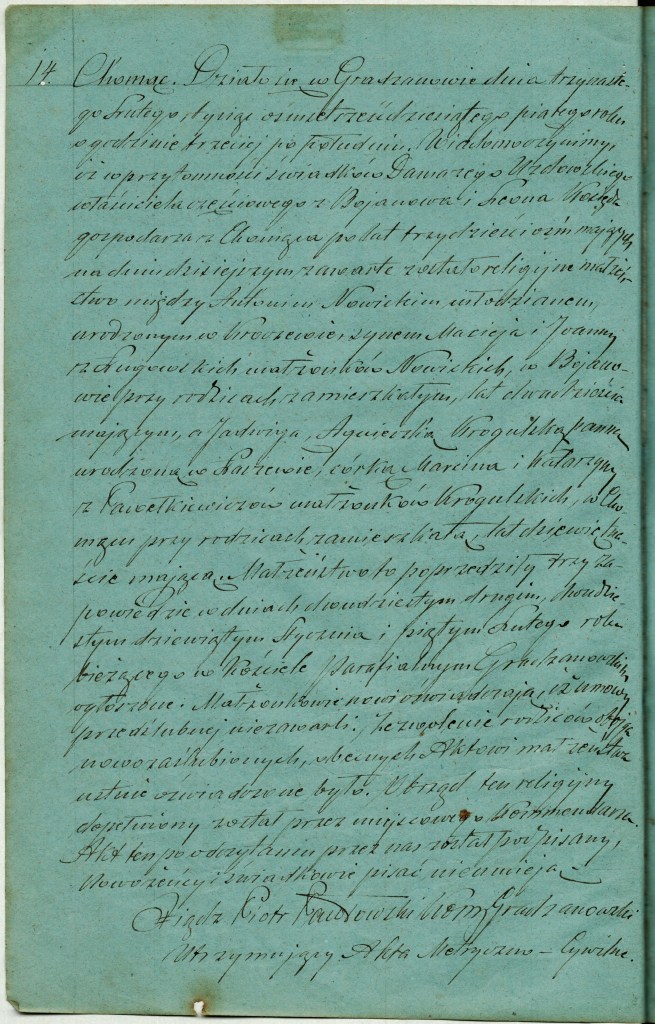 14. Chomęc. Działo się w Gradzanowie dnia trzynaste-
go Lutego, tysiąc ośmset sześćdziesiątego piątego roku
o godzinie trzeciej po południu. Wiadomo czynimy,
iż w przytomności świadków Damazego Uzdowskiego
właściciela częściowego z Bojanowa i Leona
gospodarza z Chomęca po lat trzydzieści ośm mających
na dniu dzisiejszym zawarte zostało religijne małżeń-
stwo między Antonim Nowickim, młodzianem,
urodzonym w Kroczewie, synem Macieja i Joanny
z Ługowskich małżonków Nowickich, w Bojano-
wie przy rodzicach zamieszkałym, lat dwadzieścia
mającym, a Jadwigą, Agnieszką Krogulską panną
urodzoną w Raczewie, córką Marcina i Katarzyny
z Pawełkiewiczów małżonków Krogulskich, w Cho-
męcu przy rodzicach zamieszkałą, lat dziewiętna-
ście mającą. Małżeństwo to poprzedziły trzy za-
powiedzie w dniach dwudziestym drugim, dwudzie-
stym dziewiątym Stycznia i piątym Lutego roku
bieżącego w Kościele parafialnym Gradzanowskim
ogłoszone. Małżonkowie nowi oświadczają, iż umowy
przedślubnej niezawarli. Zezwolenie rodziców obojga
nowozaślubionych, obecnych Aktowi małżeństwa
ustnie oświadczone było. Obrzęd ten religijny
dopełniony został przez miejscowego Kommendarza.
Akt ten po odczytaniu przez nas został podpisany,
Nowożeńcy i świadkowie pisać nieumieją.
Xiądz Piotr Pawłowski Kom. Gradzanowski
Utrzymujący Akta Metryczno – Cywilne.